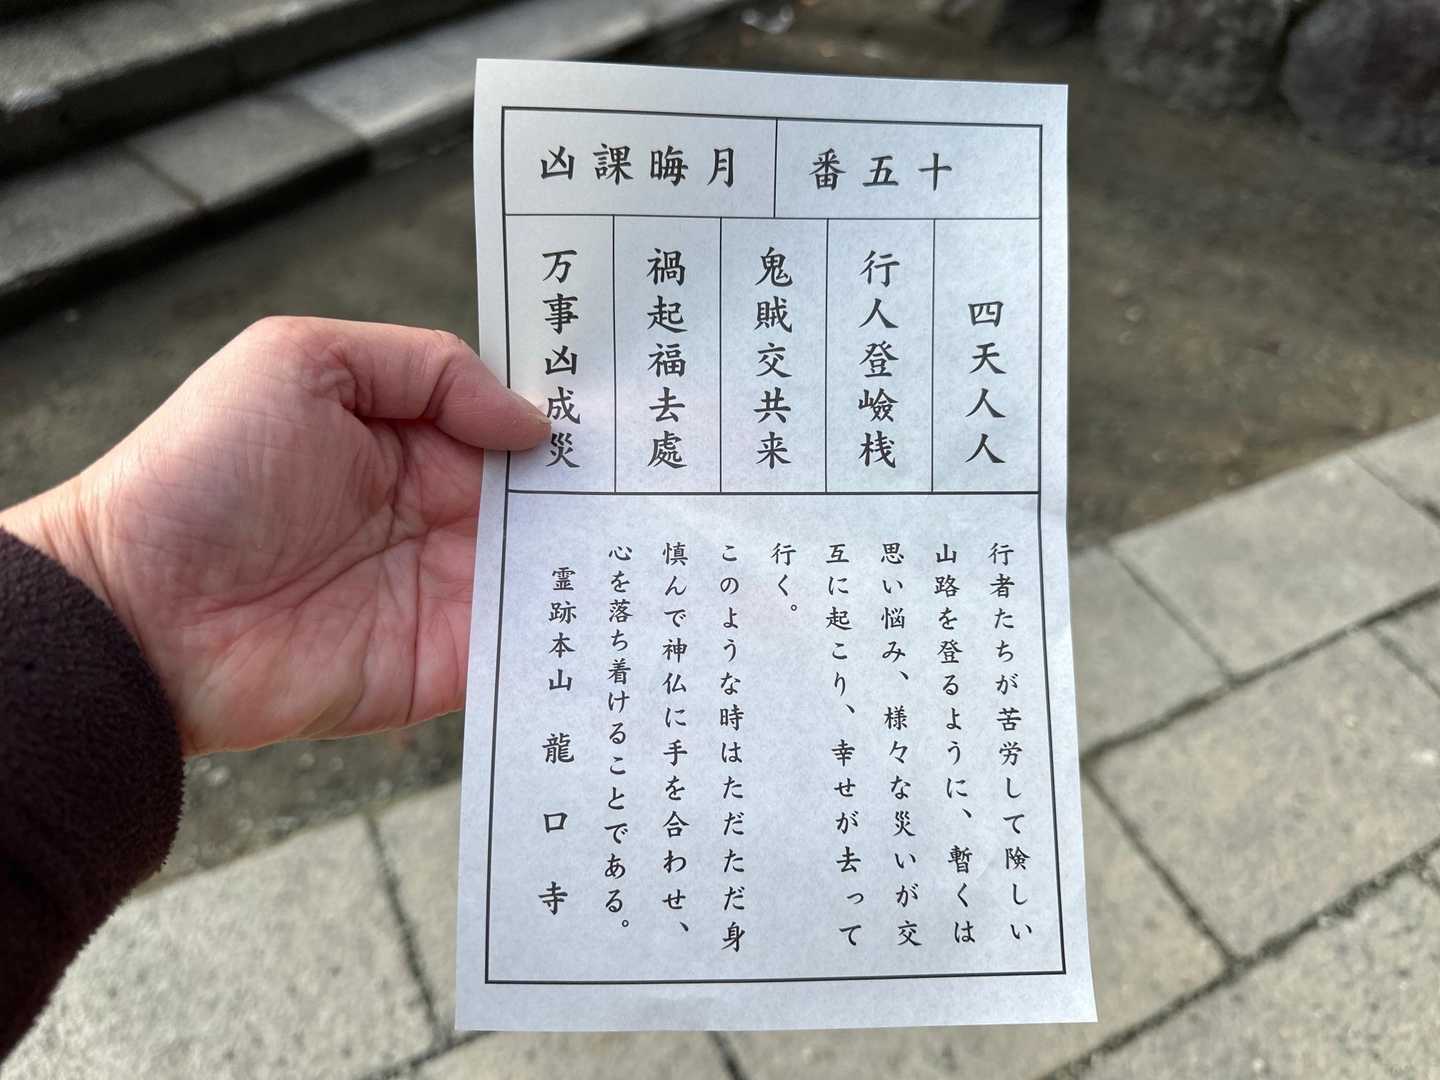 十五番
月晦課凶
四天人人
行人登嶮桟
鬼賊交共来
禍起福去處
万事凶成災
行者たちが苦労して険しい
山路を登るように、暫くは
思い悩み、様々な災いが交
互に起こり、幸せが去って
行く。
このような時はただただ身
慎んで神仏に手を合わせ、
心を落ち着けることである。
霊跡本山 龍口寺